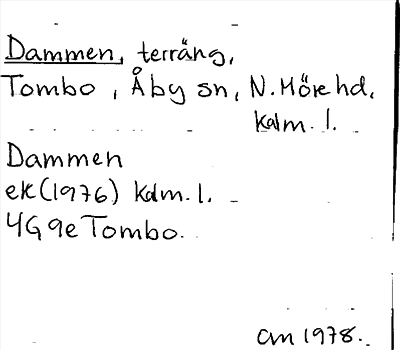 Dammen, terräng,
Tombo, Åby sn, N. Möre hd.
Kalm. l.
Dammen
ek (1976) Kalm. l.
4G 9e Tombo.
CM 1978.